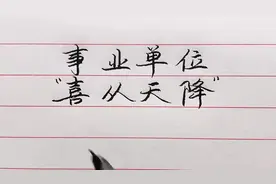 事业单位
“喜从天降”